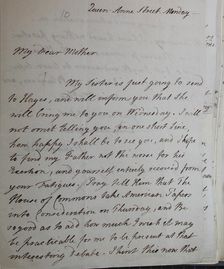 Queen Anne Street. Monday
My Dear Mother
My Sister is just going to send
to Hayes, and will inform you that She
will bring me to you on Wednesday. I will
not omit telling you, in one short line,
how happy I shall be to see you, and I hope
to find my Father not the worse for his
Exertion, and yourself entirely recovered from
your Fatigues. Pray tell Him that The
House of Commons take American Papers
into Consideration on Thursday, and
as to add how much I wish it may
be practicable for me to be present at that
interesting Debate. I